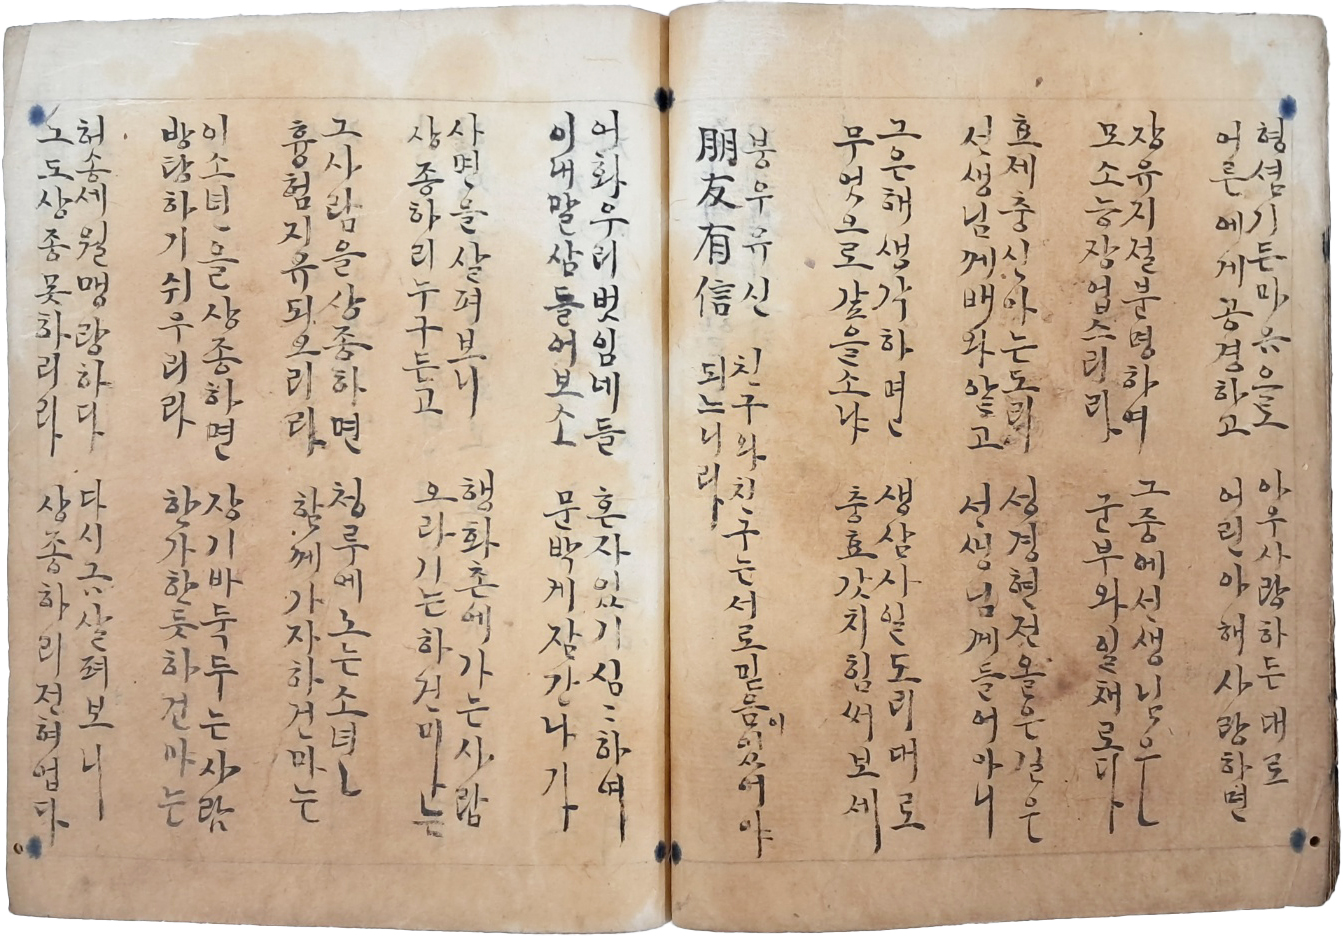 형셤기든마음으로
어른에게공경하고
아우사랑하든대로
어린아해사랑하면
장유지셜분명하여
모소능장업스리라
그중에선생님은
군부와일체로다
효제충신아는도리
선생님께배와알고
성경현전올은길은
선생님께들어아니
그은해생각하면
무엇으로갚을소냐
생삼사일도리대로
충효갓치힘써보세
붕우유신
朋友有信
친구와친구는서로믿음이잇어야
되느니라
어화우리벗임네들
이내말삼들어보소
혼자있기심〻하여
문박게잠간나가
사면을살펴보니
상종하리누구든고
행화촌에가는사람
오라기는하건마는
그사람을상종하면
흉험지유되오리라
청루에노는소녀는
함께가자하건마는
이소녀을상종하면
방탕하기쉬우리라
장기바둑두는사람
한가한듯하건마는
허송세월맹랑하다
그도상종못하리라
다시금살펴보니
상종하리전혀업다